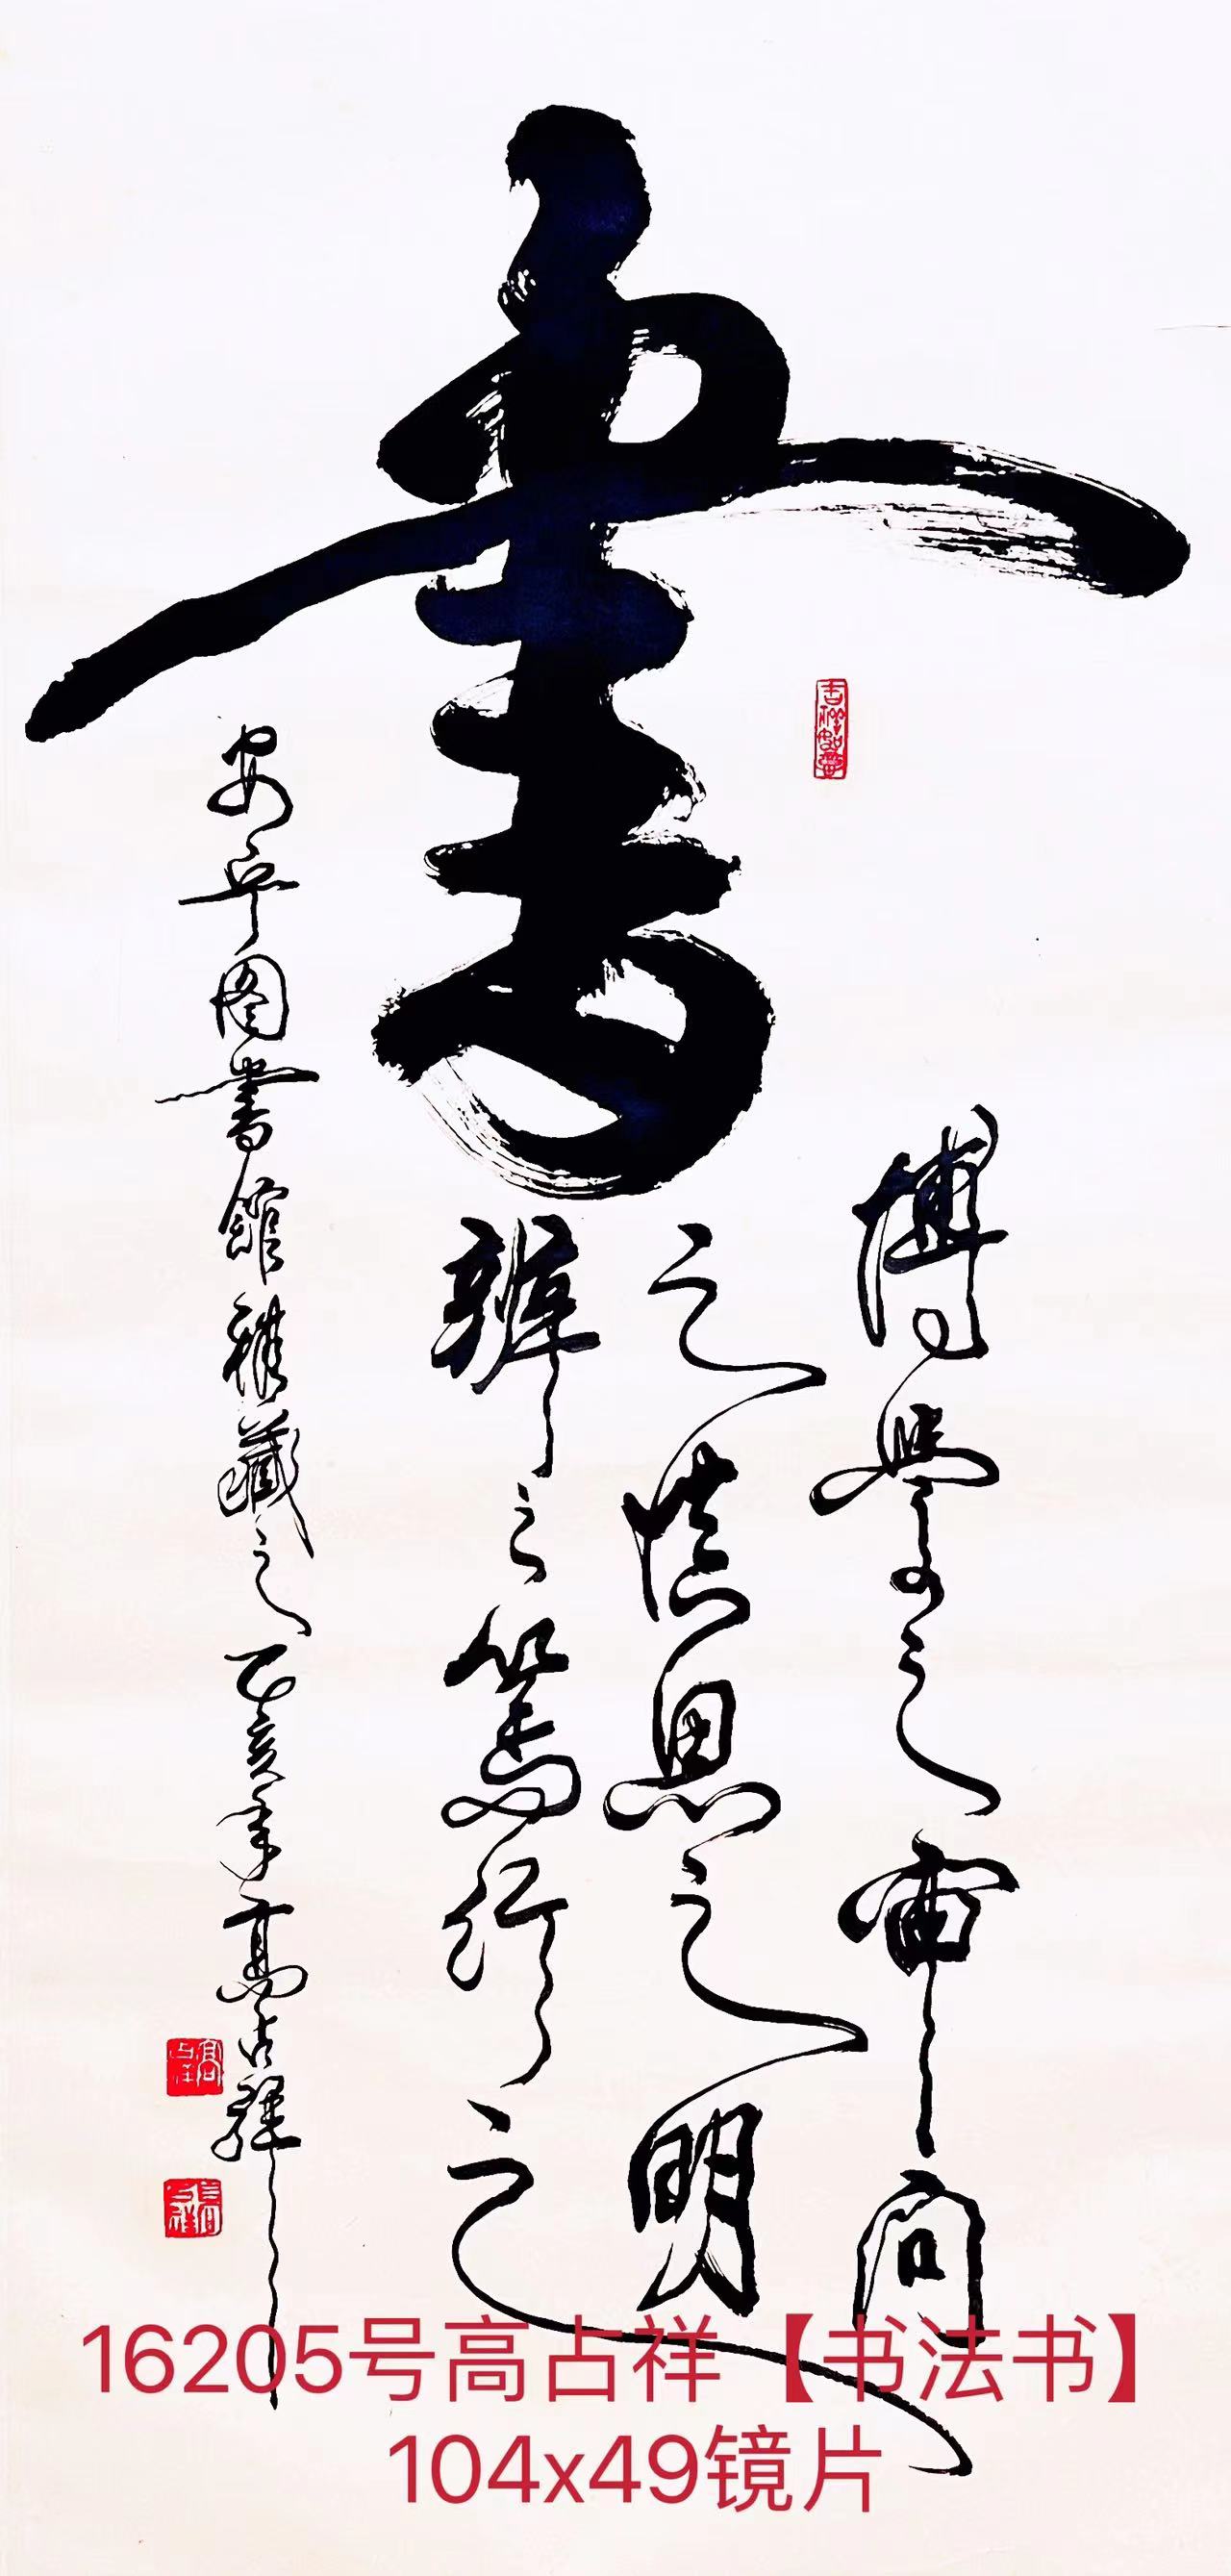 書
博學之審問
之慎思之明
辨之篤行之
安平图書館雅藏之乙亥年高占祥
吉祥如意
高占祥
16205号高占祥【书法书】
104x49镜片